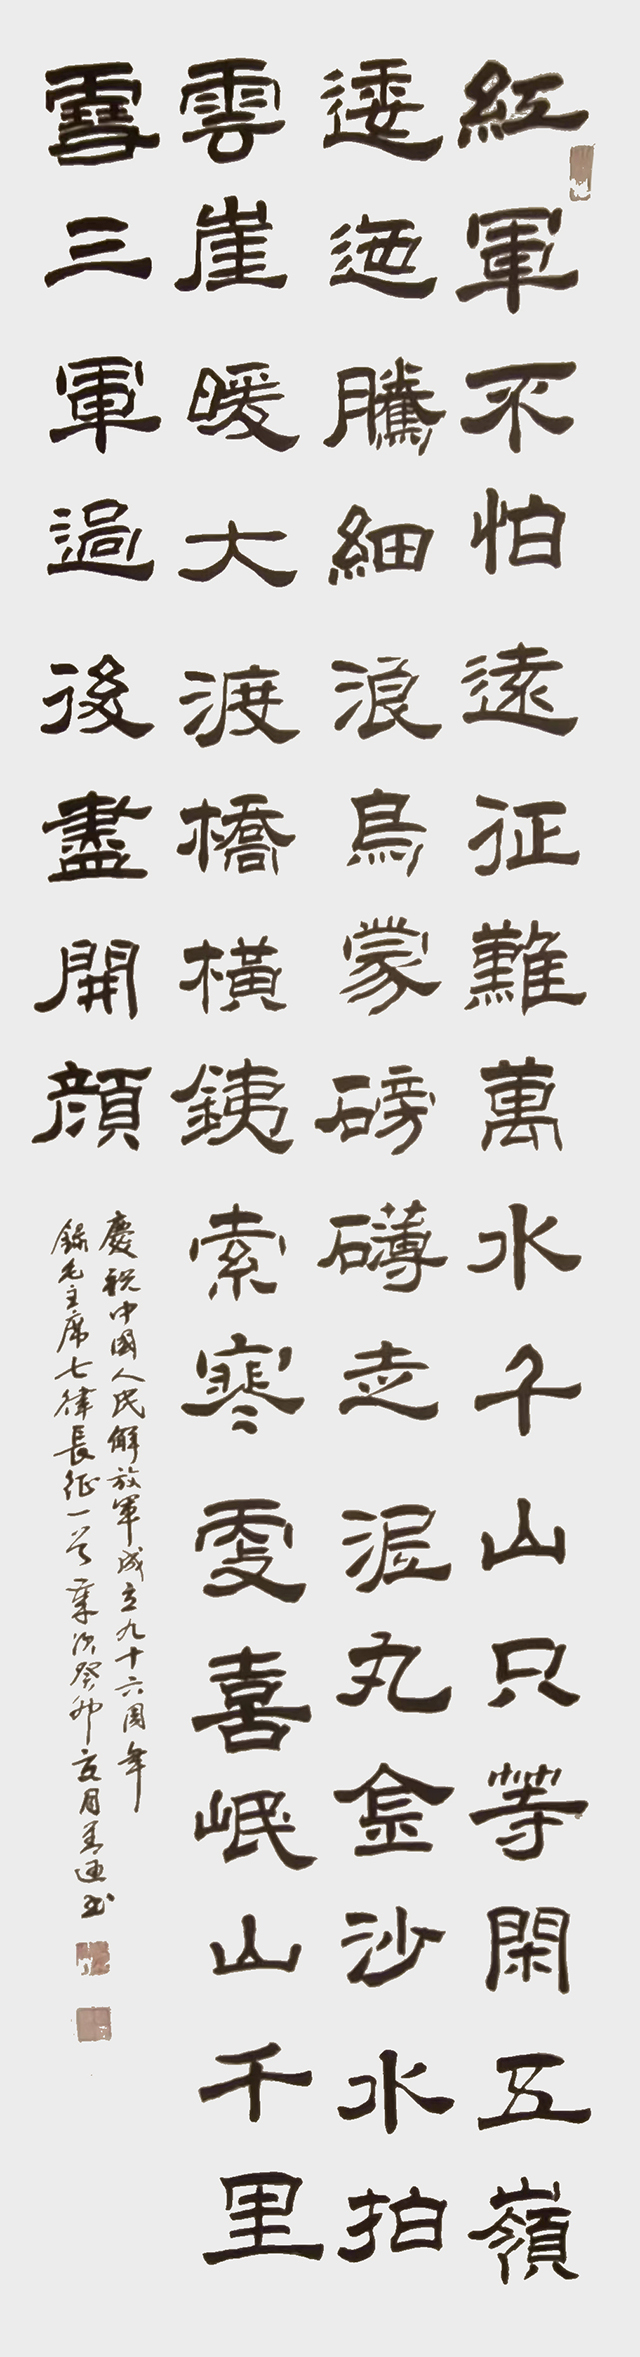 紅軍不怕遠征難萬水千山只等閑五嶺
逶迤騰細浪烏蒙磅礡走泥丸金沙水拍
雲崖暖大渡橋橫銕索寒更喜岷山千里
雪三軍過後盡開顏
慶祝中國人民解放軍成立九十六周年
錄毛主席七律長征一首歲次癸卯夏月書